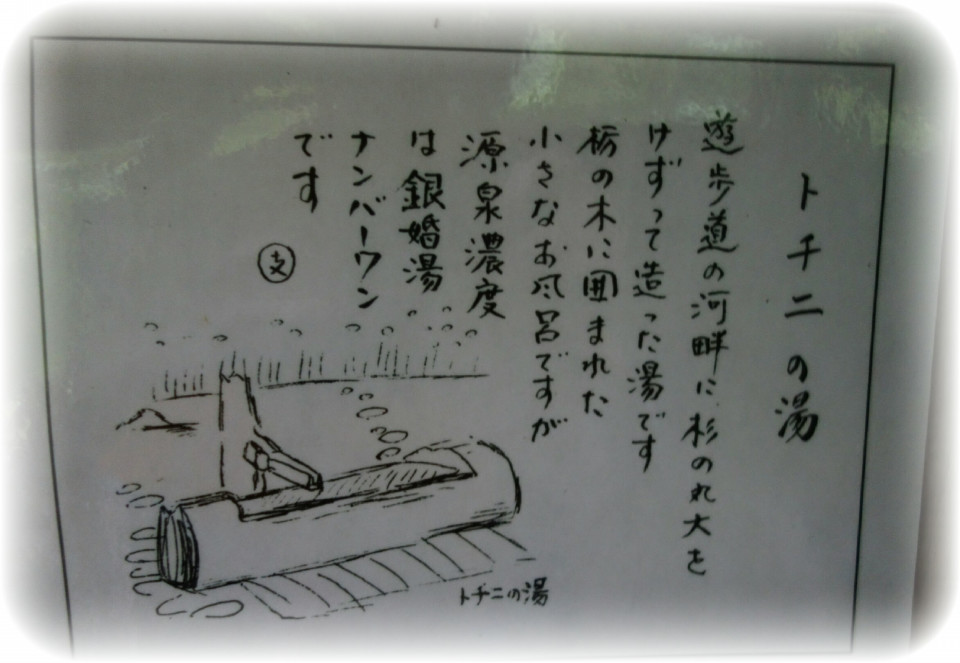 トチニの湯
遊歩道の河畔に、杉の丸太を
けずって造った湯です
栃の木に囲まれた
小さなお風呂ですが
源泉濃度
は銀婚湯
ナンバーワン
です
支
トチニの湯